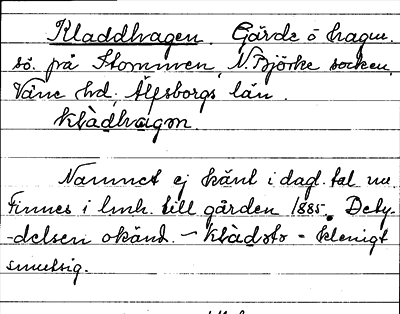 Kladdhagen. Gärde o hague.
sö. på Stommen, N. Björke socken,
Väne hd; Älfsborgs län.
klàdhagən.
Namnet ej känt i dagl. tal nu.
Finnes i lmh. till gården 1885. Bety-
-delsen okänd. – klàdətə = klenigt
smutsig.